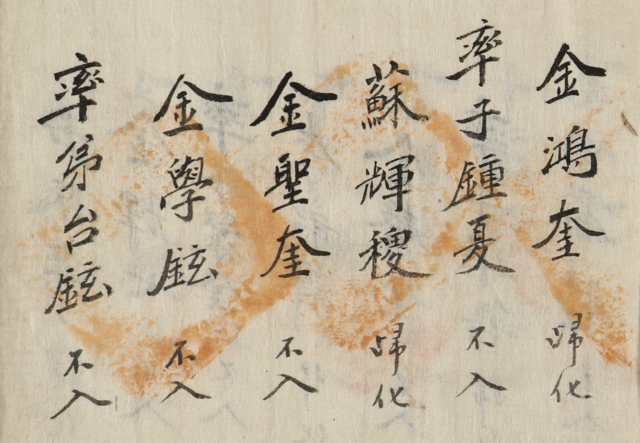 金鴻奎 歸化
率子鍾夏 不入
蘇輝稷 歸化
金聖奎 不入
金學鉉 不入
率弟台鉉 不入